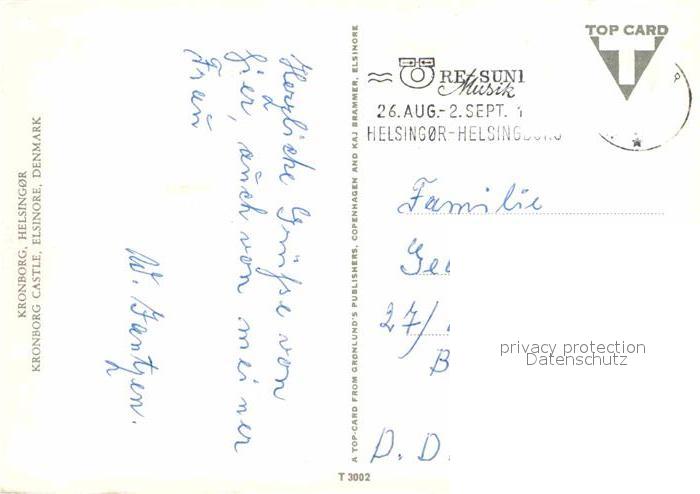 KRONBORG, HELSINGØR
KRONBORG CASTLE, ELSINORE, DENMARK
Herzliche Grüße von
hier, auch von meiner
Frau
W. Jantzen.
A TOP-CARD FROM GRØNLUND'S PUBLISHERS, COPENHAGEN AND KAJ BRAMMER, ELSINORE
T 3002
TOP CARD
T
Musik
26. AUG.-2. SEPT.
HELSINGØR-HELSINGBORG
Familie
27/
B
D. D.
privacy protection
Datenschutz